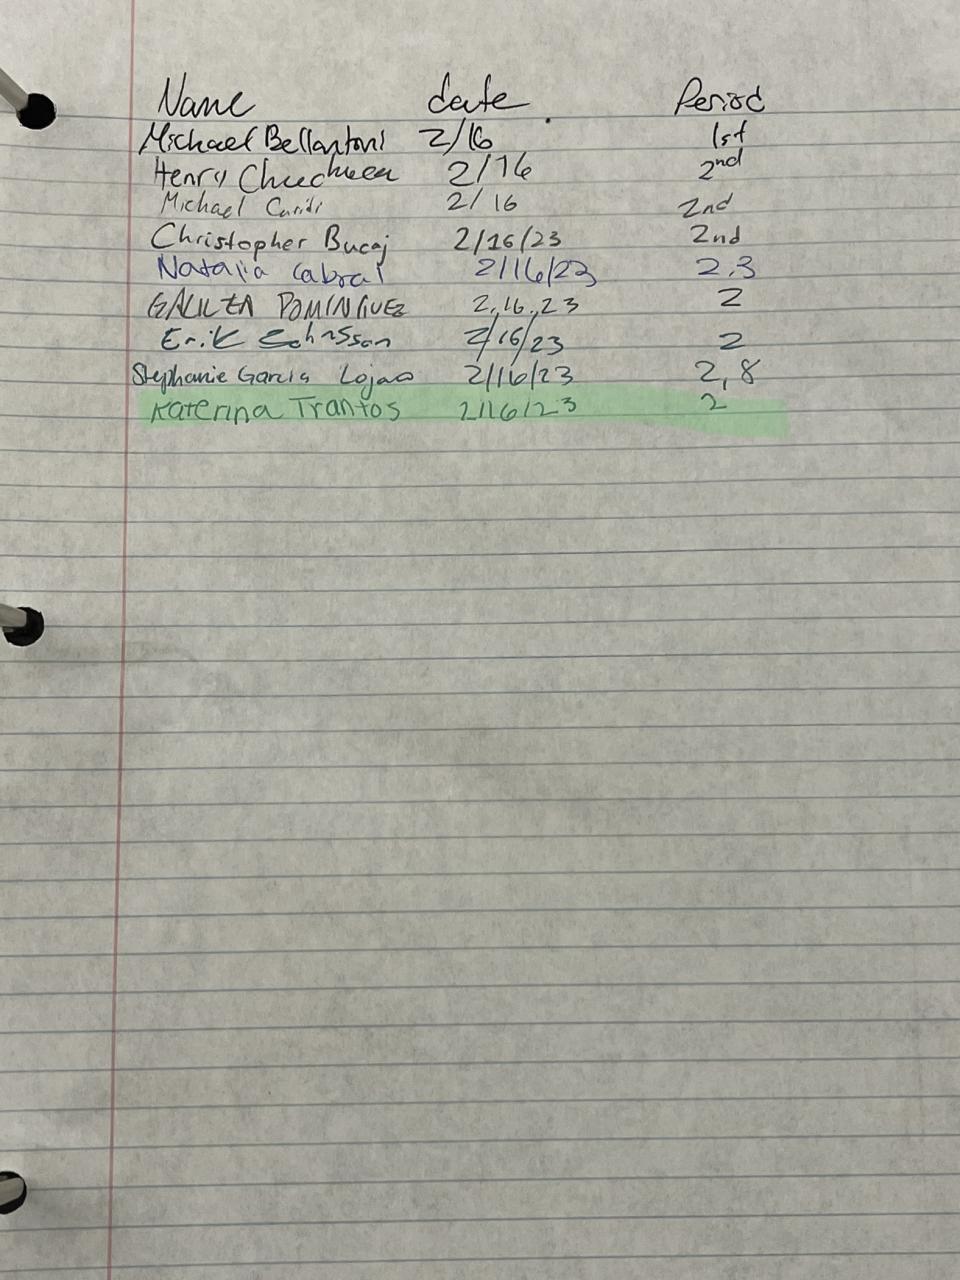 Name date Period
Michael Bellantoni 2/16 1st
Henry 2/16 2nd
Michael 2/16 2nd
Christopher Bucaj 2/16/23 2nd
Natalia Cabral 2/16/23 2,3
DOMINGUEZ 2.16.23 2
Erik 2/16/23 2
Stephanie Garcia Lojano 2/16/23 2,8
Katerina Trantos 2/16/23 2